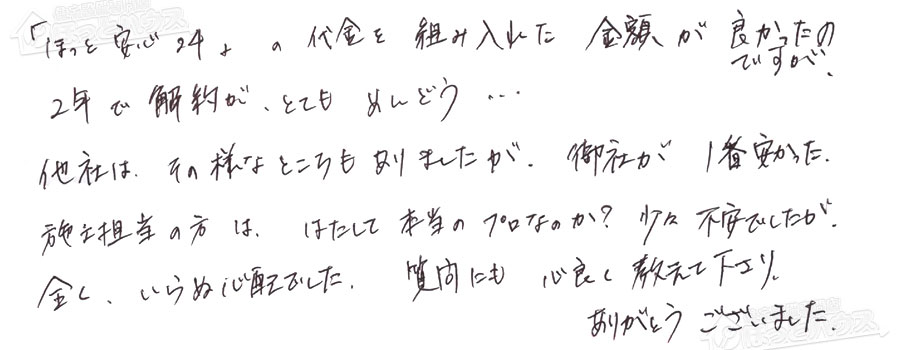 「ほっと安心24」の代金を組み入れた金額が良かったの
ですが、
2年で解約が、とてもめんどう…
他社は、その様なところもありましたが、御社が1番安かった。
施主担当の方は、はたして本当のプロなのか?少々不安でしたが、
全く、いらぬ心配でした。質問にも心良く教えて下さり、
ありがとうございました。